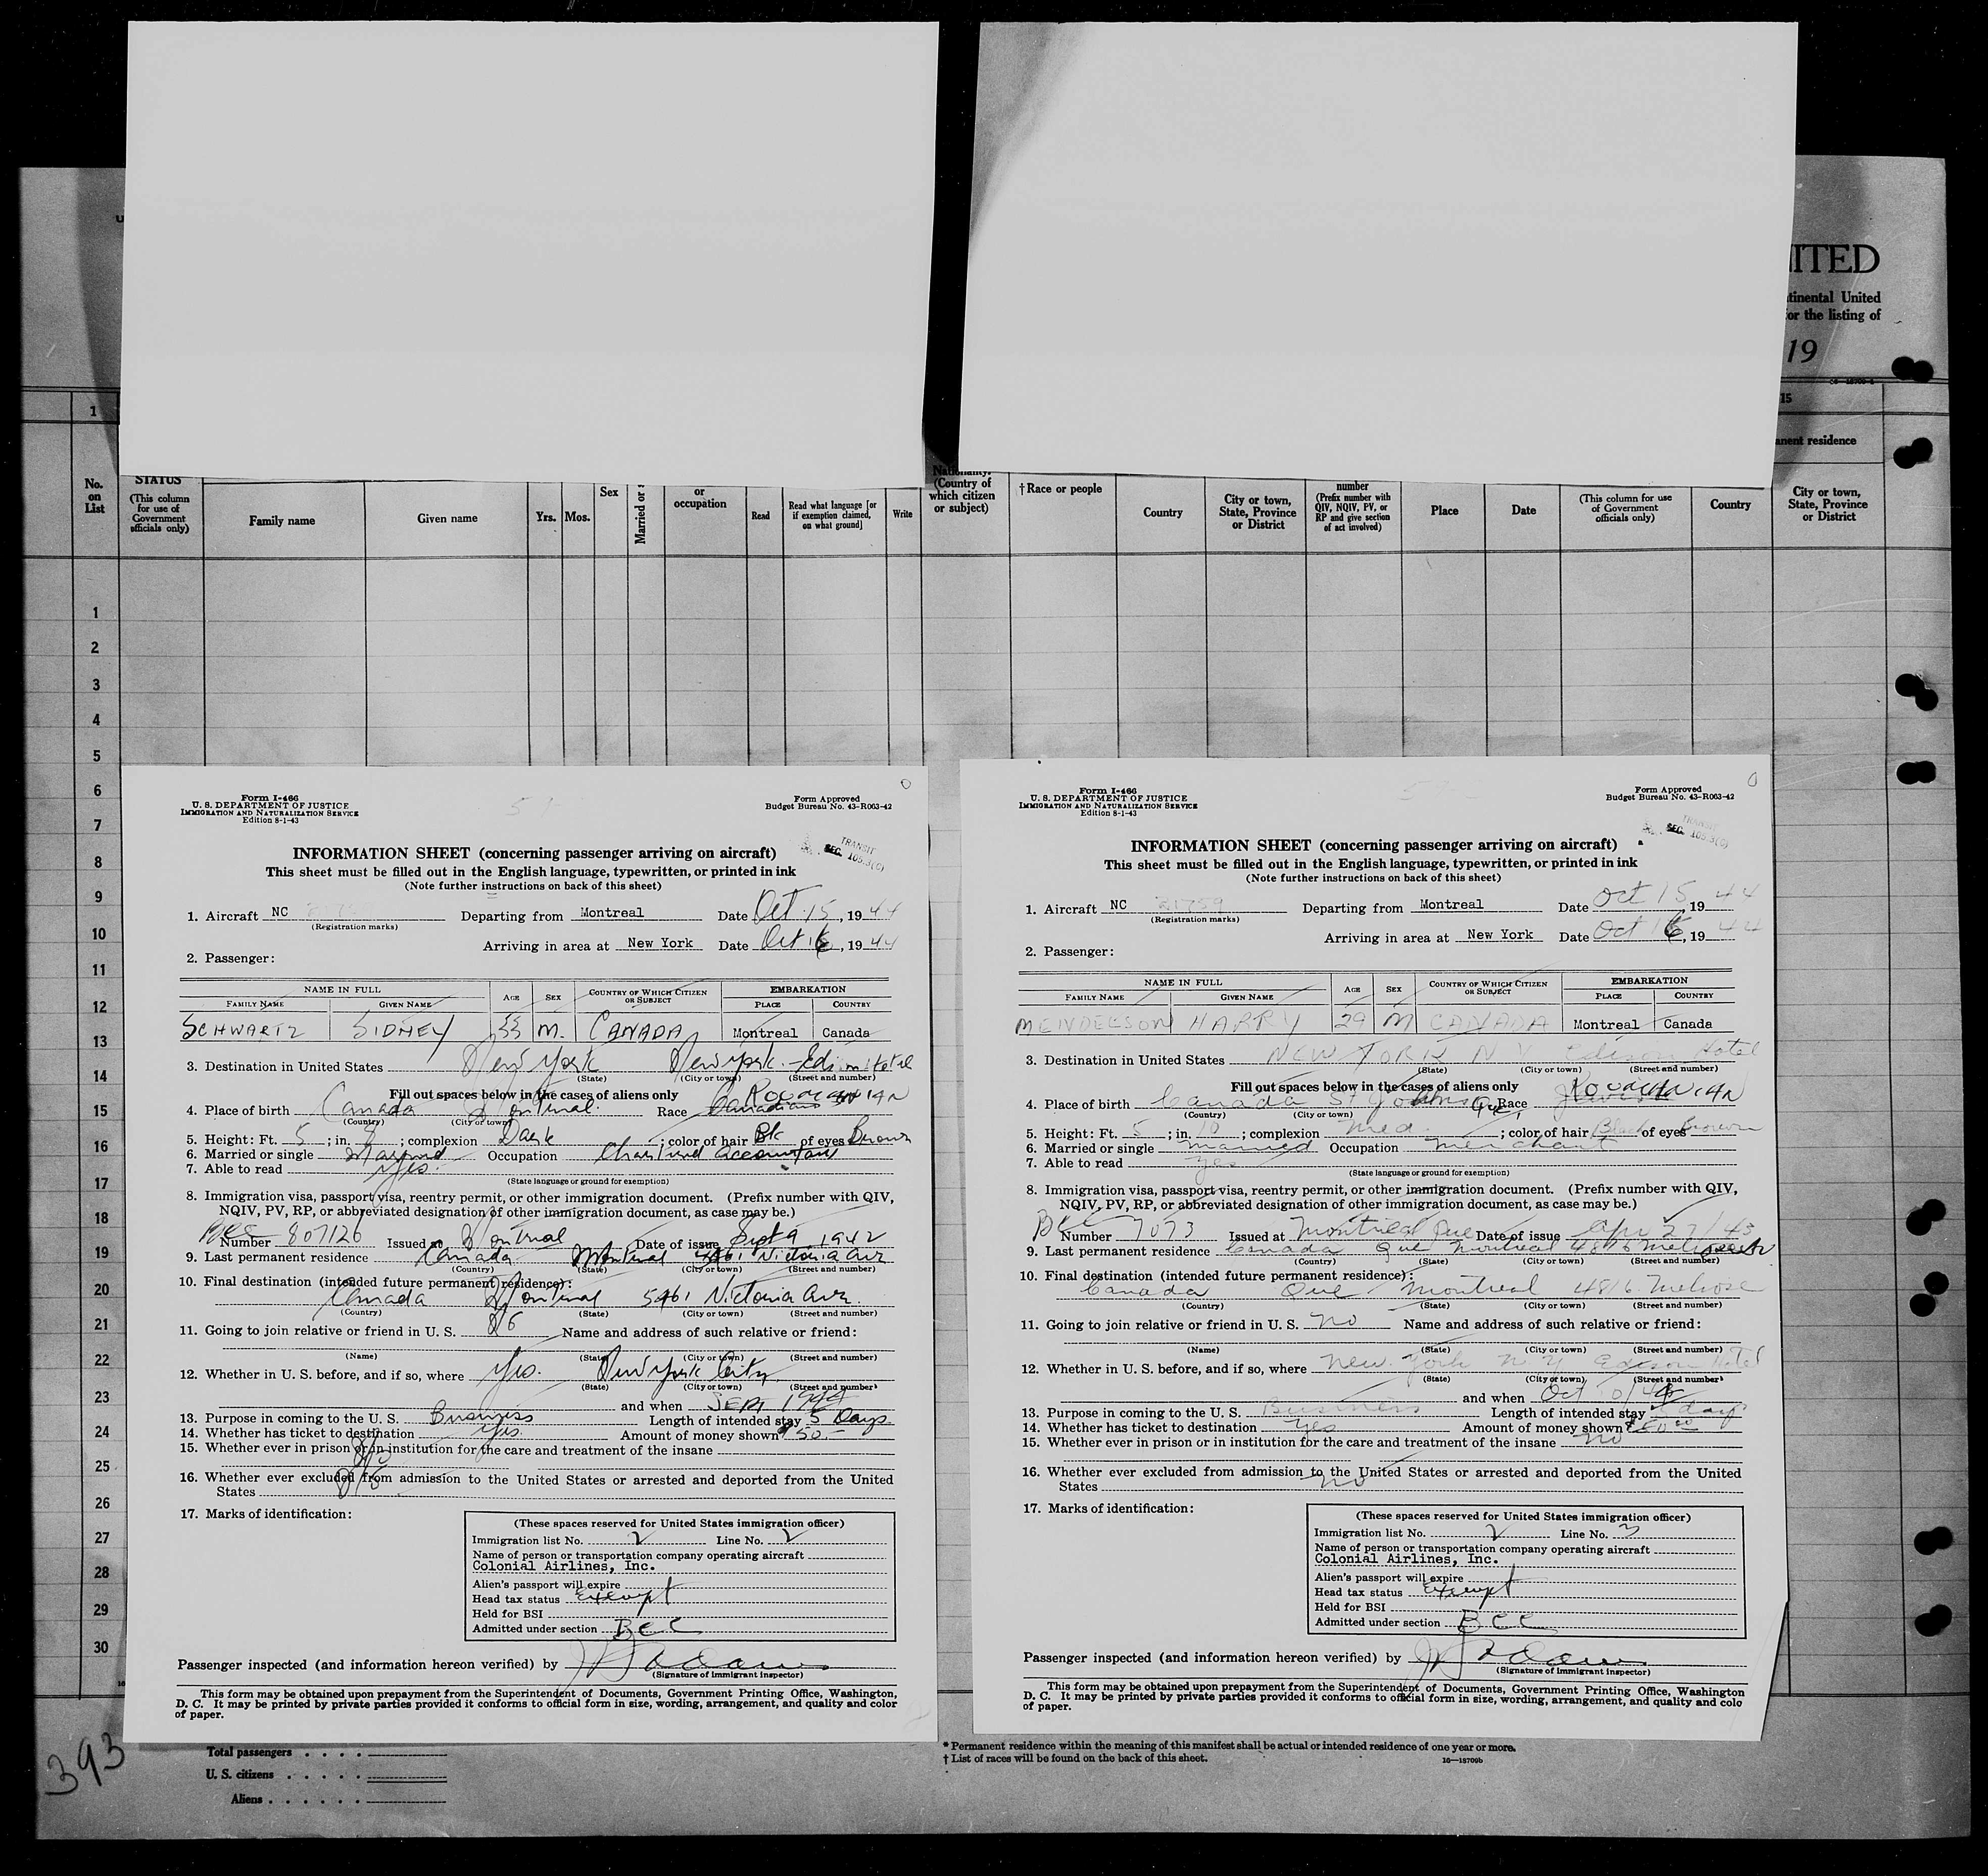 ITED
tinental United
or the listing of
19
1
15
anent residence
No. on List
STATUS
(This column for use of Government officials only)
Family name
Given name
Yrs.
Mos.
Sex
Married or s
or occupation
Read
Read what language [or if exemption claimed, on what ground]
Write
Nationality. (Country of which citizen or subject)
† Race or people
Country
City or town, State, Province or District
number (Prefix number with QIV, NQIV, PV, or RP and give section of act involved)
Place
Date
(This column for use of Government officials only)
Country
City or town, State, Province or District
1
2
3
4
5
6
7
8
9
10
11
12
13
14
15
16
17
18
19
20
21
22
23
24
25
26
27
28
29
30
Form I-466
U. S. DEPARTMENT OF JUSTICE
IMMIGRATION AND NATURALIZATION SERVICE
Edition 8-1-43
Form Approved
Budget Bureau No. 43-R063-42
TRANSIT
SEC. 105.3(C)
INFORMATION SHEET (concerning passenger arriving on aircraft)
This sheet must be filled out in the English language, typewritten, or printed in ink
(Note further instructions on back of this sheet)
1. Aircraft NC Departing from Montreal Date Oct 15, 1944
(Registration marks)
Arriving in area at New York Date Oct 16, 1944
2. Passenger:
NAME IN FULL AGE SEX COUNTRY OF WHICH CITIZEN OR SUBJECT EMBARKATION
FAMILY NAME GIVEN NAME PLACE COUNTRY
SCHWARTZ SIDNEY 33 M. CANADA Montreal Canada
3. Destination in United States New York New York - Edison Hotel
(State) (City or town) (Street and number)
Fill out spaces below in the cases of aliens only
4. Place of birth Canada Montreal. Race Canadian ROUMANIAN
(Country) (City or town)
5. Height: Ft. 5; in. 8; complexion Dark; color of hair Bk of eyes Brown
6. Married or single Married Occupation Chartered Accountant
7. Able to read Yes.
(State language or ground for exemption)
8. Immigration visa, passport visa, reentry permit, or other immigration document. (Prefix number with QIV,
NQIV, PV, RP, or abbreviated designation of other immigration document, as case may be.)
Number 807126 Issued at Montreal Date of issue Sept 9 1942
9. Last permanent residence Canada Montreal 5461 Victoria Ave
(Country) (State) (City or town) (Street and number)
10. Final destination (intended future permanent residence):
Canada Montreal 5461 Victoria Ave.
(Country) (State) (City or town) (Street and number)
11. Going to join relative or friend in U. S. No Name and address of such relative or friend:
(Name) (State) (City or town) (Street and number)
12. Whether in U. S. before, and if so, where Yes. New York City
(State) (City or town) (Street and number)
and when SEPT 1944
13. Purpose in coming to the U. S. Business Length of intended stay 5 Days
14. Whether has ticket to destination Yes. Amount of money shown $50.-
15. Whether ever in prison or in institution for the care and treatment of the insane
No
16. Whether ever excluded from admission to the United States or arrested and deported from the United
States No
17. Marks of identification:
(These spaces reserved for United States immigration officer)
Immigration list No. 2 Line No. 2
Name of person or transportation company operating aircraft
Colonial Airlines, Inc.
Alien's passport will expire
Head tax status exempt
Held for BSI
Admitted under section BCC
Passenger inspected (and information hereon verified) by
(Signature of immigrant inspector)
This form may be obtained upon prepayment from the Superintendent of Documents, Government Printing Office, Washington,
D. C. It may be printed by private parties provided it conforms to official form in size, wording, arrangement, and quality and color
of paper.
Form I-466
U. S. DEPARTMENT OF JUSTICE
IMMIGRATION AND NATURALIZATION SERVICE
Edition 8-1-43
Form Approved
Budget Bureau No. 43-R063-42
TRANSIT
SEC. 105.3(C)
INFORMATION SHEET (concerning passenger arriving on aircraft)
This sheet must be filled out in the English language, typewritten, or printed in ink
(Note further instructions on back of this sheet)
1. Aircraft NC 21759 Departing from Montreal Date Oct 15, 1944
(Registration marks)
Arriving in area at New York Date Oct 16, 1944
2. Passenger:
NAME IN FULL AGE SEX COUNTRY OF WHICH CITIZEN OR SUBJECT EMBARKATION
FAMILY NAME GIVEN NAME PLACE COUNTRY
MENDELSON HARRY 29 M CANADA Montreal Canada
3. Destination in United States NEW YORK N.Y. Edison Hotel
(State) (City or town) (Street and number)
Fill out spaces below in the cases of aliens only
4. Place of birth Canada St Johns Que, Race Jewish ROUMANIAN
(Country) (City or town)
5. Height: Ft. 5; in. 10; complexion Med.; color of hair Black of eyes Brown
6. Married or single married Occupation merchant
7. Able to read yes
(State language or ground for exemption)
8. Immigration visa, passport visa, reentry permit, or other immigration document. (Prefix number with QIV,
NQIV, PV, RP, or abbreviated designation of other immigration document, as case may be.)
Number 7073 Issued at Montreal Que Date of issue Apr 27/43
9. Last permanent residence Canada Que Montreal 4816 Melrose
(Country) (State) (City or town) (Street and number)
10. Final destination (intended future permanent residence):
Canada Que Montreal 4816 Melrose
(Country) (State) (City or town) (Street and number)
11. Going to join relative or friend in U. S. no Name and address of such relative or friend:
(Name) (State) (City or town) (Street and number)
12. Whether in U. S. before, and if so, where New York N Y Edison Hotel
(State) (City or town) (Street and number)
and when Oct
13. Purpose in coming to the U. S. Business Length of intended stay days
14. Whether has ticket to destination yes Amount of money shown
15. Whether ever in prison or in institution for the care and treatment of the insane no
16. Whether ever excluded from admission to the United States or arrested and deported from the United
States no
17. Marks of identification:
(These spaces reserved for United States immigration officer)
Immigration list No. 2 Line No. 3
Name of person or transportation company operating aircraft
Colonial Airlines, Inc.
Alien's passport will expire
Head tax status exempt
Held for BSI
Admitted under section BCC
Passenger inspected (and information hereon verified) by
(Signature of immigrant inspector)
This form may be obtained upon prepayment from the Superintendent of Documents, Government Printing Office, Washington
D. C. It may be printed by private parties provided it conforms to official form in size, wording, arrangement, and quality and colo
of paper.
393
Total passengers . . . .
U. S. citizens . . . . .
Aliens . . . . . .
* Permanent residence within the meaning of this manifest shall be actual or intended residence of one year or more.
† List of races will be found on the back of this sheet.
16—18709b